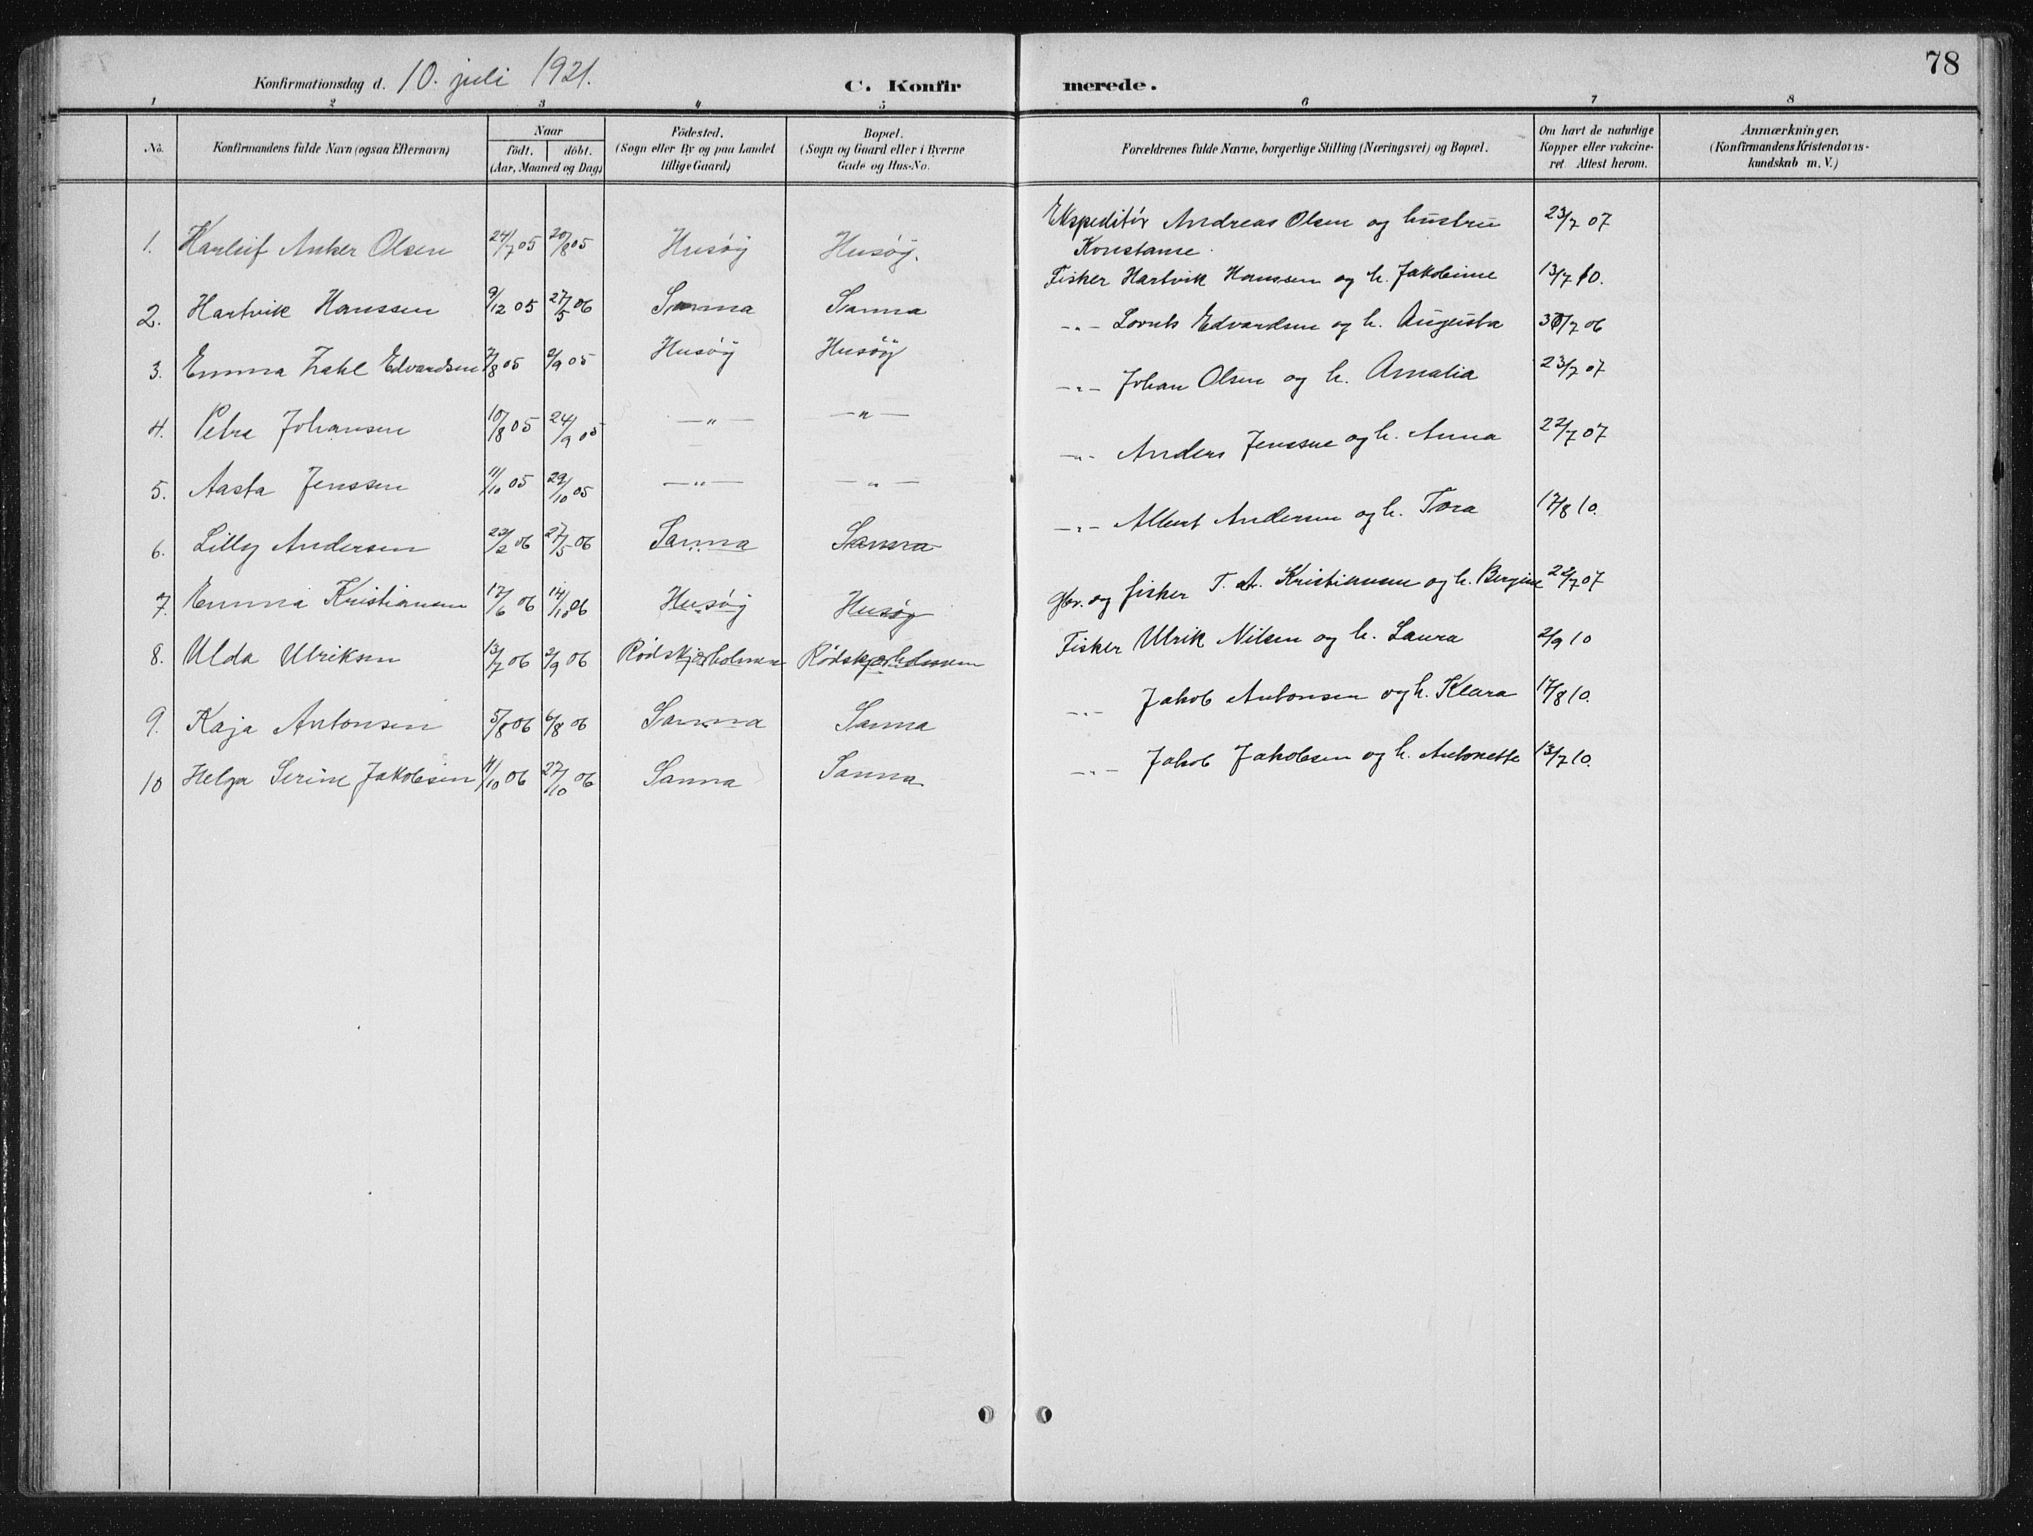 78
Konfirmationsdag d. 10. juli 1921. C. Konfir merede.
1 2 3 4 5 6 7 8
No. Konfirmandens fulde Navn (ogsaa Efternavn)
Naar
födt. döbt.
(Aar, Maaned og Dag)
Födested.
(Sogn eller By og paa Landet
tillige Gaard)
Bopæl.
(Sogn og Gaard eller i Byerne
Gade og Hus-No.
Forældrenes fulde Navne, borgerlige Stilling (Næringsvei) og Bopæl.
Om havt de naturlige
Kopper eller vakcine-
ret. Attest herom.
Anmærkninger.
(Konfirmandens Kristendoms-
kundskab m. V.)
1. Harleif Anker Olsen 24/7 05 20/8 05 Husøy Husøy. Ekspeditør Andreas Olsen og hustru 23/7 07
Konstanse.
2. Hartvik Hanssen 9/12 05 27/5 06 Sanna Sanna Fisker Hartvik Hanssen og h. Jakobine 13/7 10.
3. Emma Zahl Edvardsen 7/8 05 2/9 05 Husøy Husøy -"- Edvardsen og h. Augusta 06
4. Petra Johansen 10/8 05 24/9 05 -"- -"- -"- Johan Olsen og h. Amalia 23/7 07
5. Aasta Jenssen 11/10 05 29/10 05 -"- -"- -"- Anders Jenssne og h. Anna 22/7 07
6. Lilly Andersen 23/2 06 27/5 06 Sanna Sanna -"- Albert Andersen og h. Tora 17/8 10.
7. Emma Kristiansen 17/6 06 14/10 06 Husøy Husøy gbr. og fisker T. A. Kristiansen og h. Bergine 22/7 07
8. Ulda Ulriksen 13/7 06 2/9 06 Rødskjærholmen Rødskjærholmen Fisker Ulrik Nilsen og h. Laura 2/9 10
9. Kaja Antonsen 5/8 06 6/8 06 Sanna Sanna -"- Jakob Antonsen og h. Klara 17/8 10.
10 Helga Serine Jakobsen 11/10 06 27/10 06 Sanna Sanna -"- Jakob Jakobsen og h. Antonette 13/7 10.